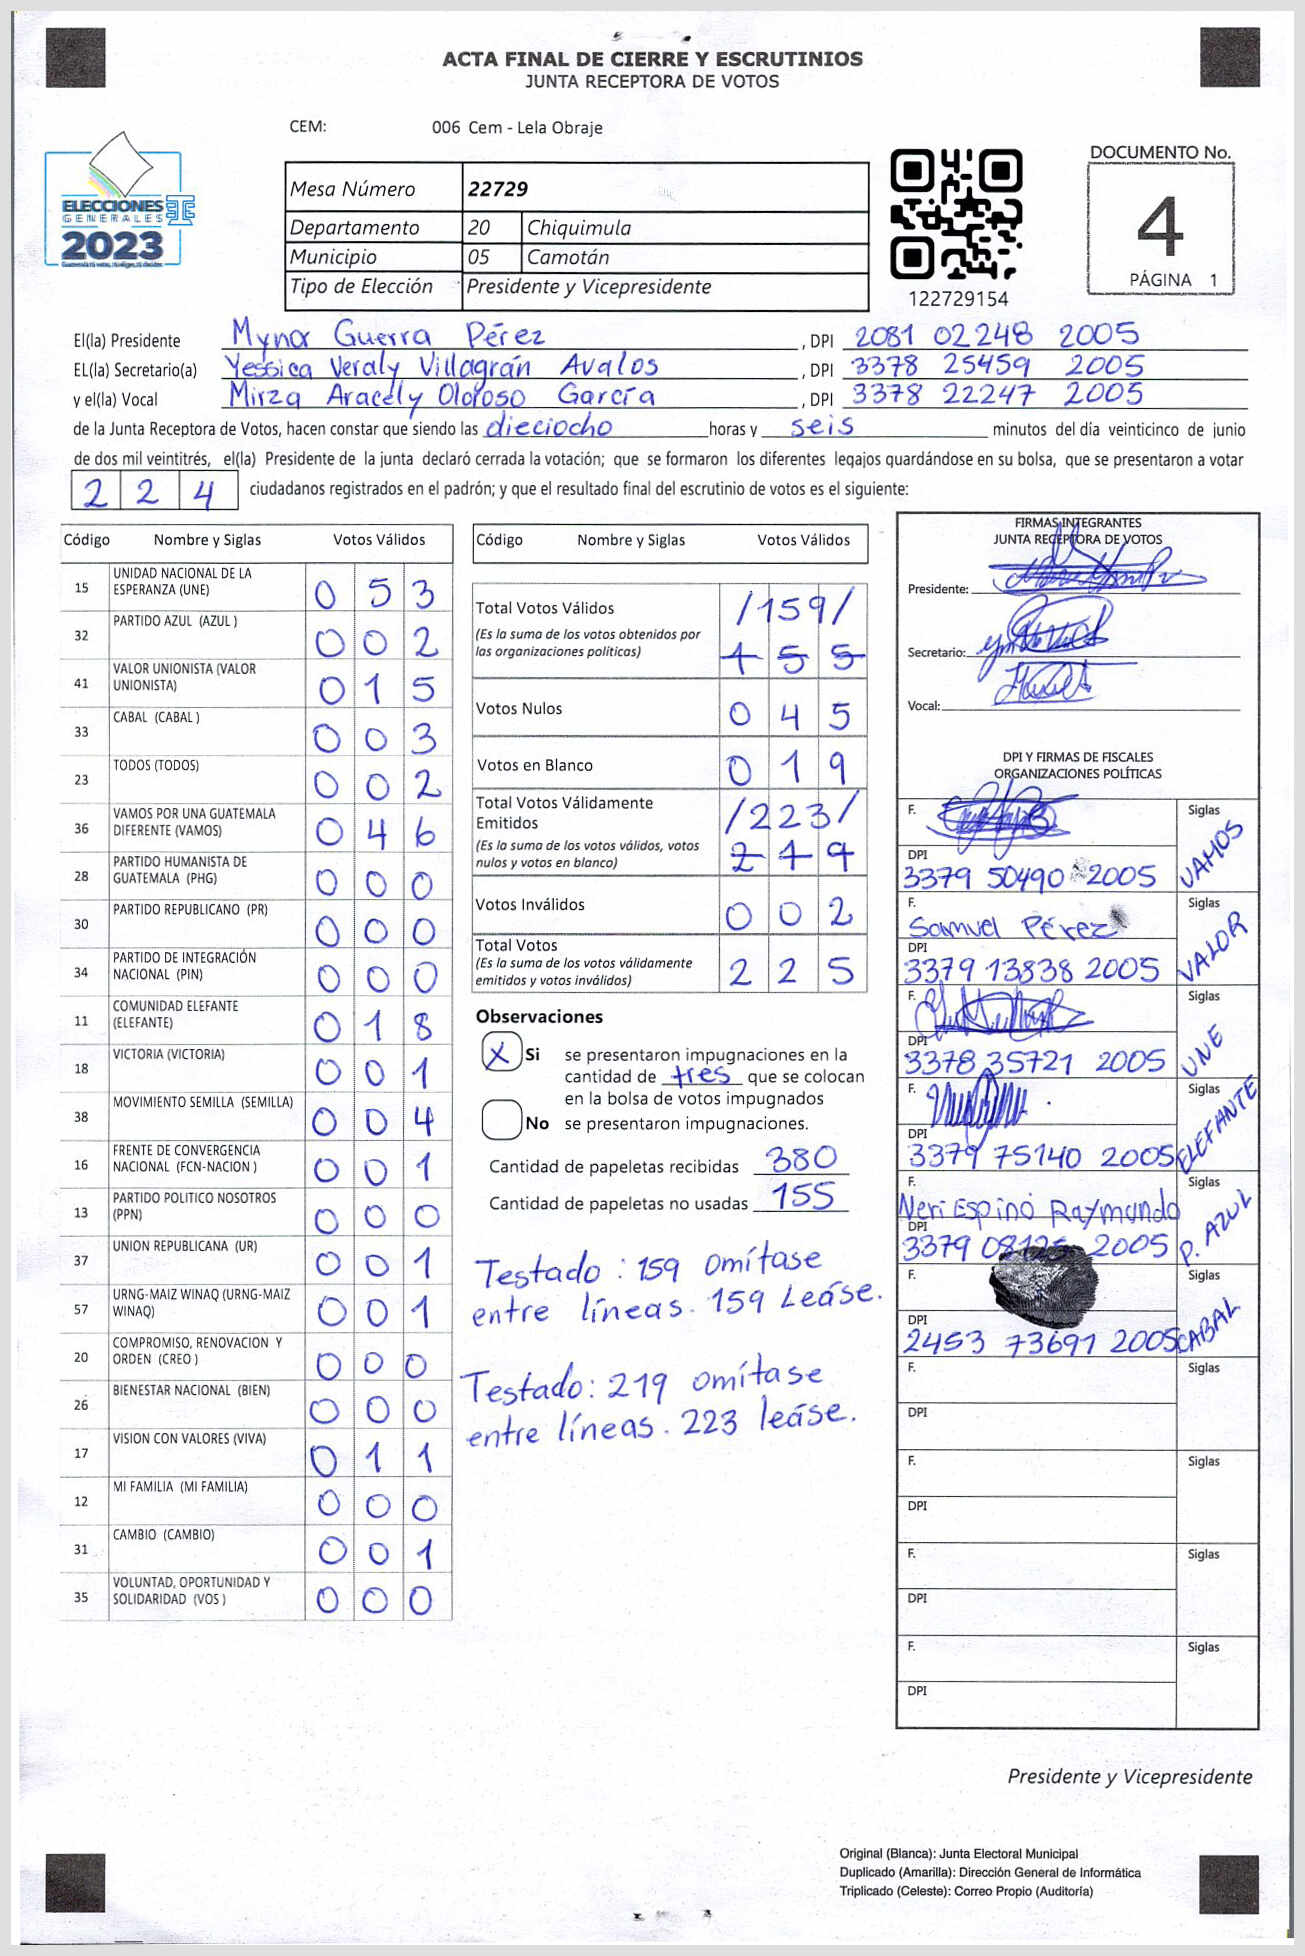 ACTA FINAL DE CIERRE Y ESCRUTINIOS
JUNTA RECEPTORA DE VOTOS
CEM: 006 Cem - Lela Obraje
ELECCIONES
GENERALES
2023
Mesa Número 22729
Departamento 20 Chiquimula
Municipio 05 Camotán
Tipo de Elección Presidente y Vicepresidente
122729154
DOCUMENTO No.
4
PÁGINA 1
El(la) Presidente Mynor Guerra Pérez, DPI 2081 02248 2005
EL(la) Secretario(a) Yessica Veraly Villagrán Avalos, DPI 3378 25459 2005
y el(la) Vocal Mirza Aracely Oloroso García, DPI 3378 22247 2005
de la Junta Receptora de Votos, hacen constar que siendo las dieciocho horas y seis minutos del día veinticinco de junio
de dos mil veintitrés, el(la) Presidente de la junta declaró cerrada la votación; que se formaron los diferentes legajos guardándose en su bolsa, que se presentaron a votar
2 2 4 ciudadanos registrados en el padrón; y que el resultado final del escrutinio de votos es el siguiente:
Código Nombre y Siglas Votos Válidos
15 UNIDAD NACIONAL DE LA
ESPERANZA (UNE) 0 5 3
32 PARTIDO AZUL (AZUL ) 0 0 2
41 VALOR UNIONISTA (VALOR
UNIONISTA) 0 1 5
33 CABAL (CABAL ) 0 0 3
23 TODOS (TODOS) 0 0 2
36 VAMOS POR UNA GUATEMALA
DIFERENTE (VAMOS) 0 4 6
28 PARTIDO HUMANISTA DE
GUATEMALA (PHG) 0 0 0
30 PARTIDO REPUBLICANO (PR) 0 0 0
34 PARTIDO DE INTEGRACIÓN
NACIONAL (PIN) 0 0 0
11 COMUNIDAD ELEFANTE
(ELEFANTE) 0 1 8
18 VICTORIA (VICTORIA) 0 0 1
38 MOVIMIENTO SEMILLA (SEMILLA) 0 0 4
16 FRENTE DE CONVERGENCIA
NACIONAL (FCN-NACION ) 0 0 1
13 PARTIDO POLITICO NOSOTROS
(PPN) 0 0 0
37 UNION REPUBLICANA (UR) 0 0 1
57 URNG-MAIZ WINAQ (URNG-MAIZ
WINAQ) 0 0 1
20 COMPROMISO, RENOVACION Y
ORDEN (CREO ) 0 0 0
26 BIENESTAR NACIONAL (BIEN) 0 0 0
17 VISION CON VALORES (VIVA) 0 1 1
12 MI FAMILIA (MI FAMILIA) 0 0 0
31 CAMBIO (CAMBIO) 0 0 1
35 VOLUNTAD, OPORTUNIDAD Y
SOLIDARIDAD (VOS ) 0 0 0
Código Nombre y Siglas Votos Válidos
Total Votos Válidos /159/
(Es la suma de los votos obtenidos por
las organizaciones políticas) 1 5 5
Votos Nulos 0 4 5
Votos en Blanco 0 1 9
Total Votos Válidamente
Emitidos /223/
(Es la suma de los votos válidos, votos
nulos y votos en blanco) 2 1 9
Votos Inválidos 0 0 2
Total Votos
(Es la suma de los votos válidamente
emitidos y votos inválidos) 2 2 5
Observaciones
X Si se presentaron impugnaciones en la
cantidad de tres que se colocan
en la bolsa de votos impugnados
No se presentaron impugnaciones.
Cantidad de papeletas recibidas 380
Cantidad de papeletas no usadas 155
Testado : 159 omítase
entre líneas. 159 Leáse.
Testado: 219 omítase
entre líneas. 223 leáse.
FIRMAS INTEGRANTES
JUNTA RECEPTORA DE VOTOS
Presidente:
Secretario:
Vocal:
DPI Y FIRMAS DE FISCALES
ORGANIZACIONES POLÍTICAS
F. Siglas
DPI
3379 50490 2005 VAMOS
F. Siglas
Samuel Pérez
DPI
3379 13838 2005 VALOR
F. Siglas
DPI
3378 35721 2005 UNE
F. Siglas
DPI
3379 75140 2005 ELEFANTE
F. Siglas
Neri Espino Raymundo
DPI
3379 2005 P. AZUL
F. Siglas
DPI
2453 73691 2005 CABAL
F. Siglas
DPI
F. Siglas
DPI
F. Siglas
DPI
F. Siglas
DPI
Presidente y Vicepresidente
Original (Blanca): Junta Electoral Municipal
Duplicado (Amarilla): Dirección General de Informática
Triplicado (Celeste): Correo Propio (Auditoría)